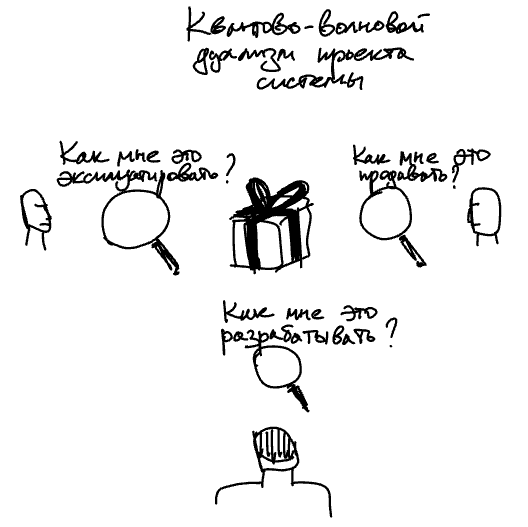 Квантово-волновой
дуализм проекта
системы
Как мне это
эксплуатировать?
Как мне это
продавать?
Как мне это
разрабатывать?